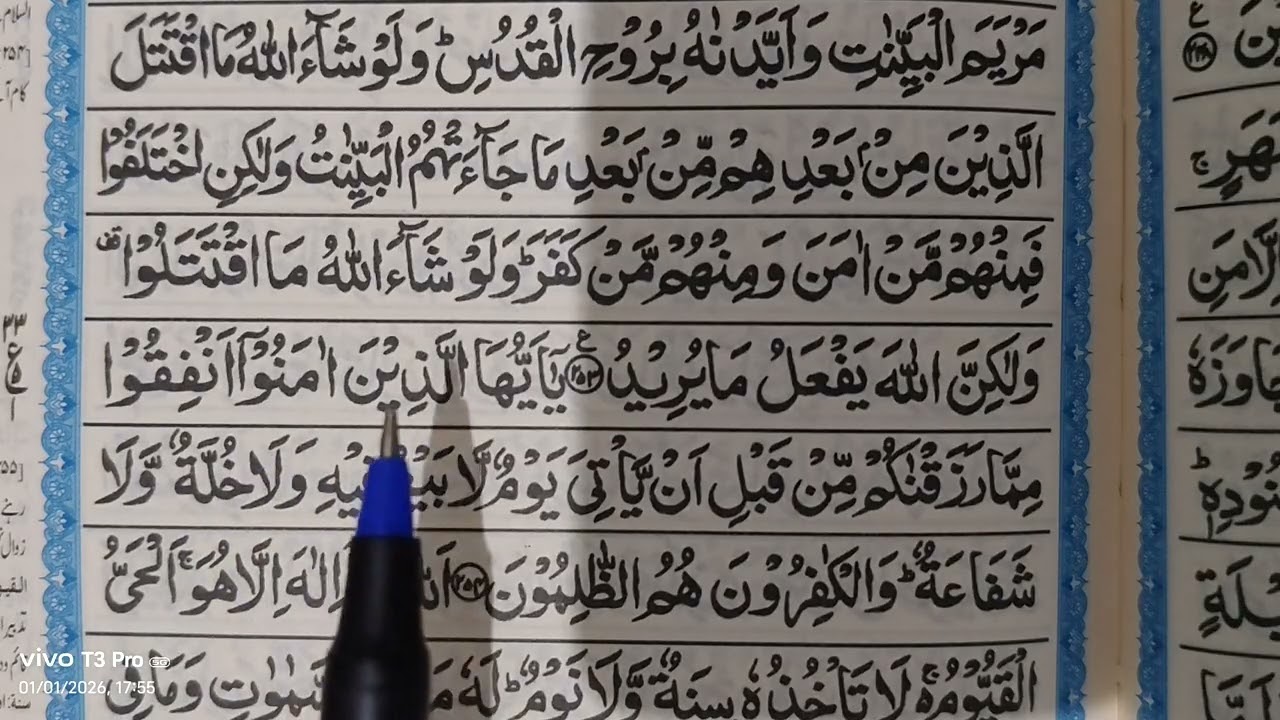 مَرْيَمَ الْبَيِّنٰتِ وَاَيَّدْنٰهُ بِرُوْحِ الْقُدُسِ ؕ وَلَوْ شَآءَ اللّٰهُ مَا اقْتَتَلَ
الَّذِيْنَ مِنْۢ بَعْدِ هِمْ مِّنْۢ بَعْدِ مَا جَآءَتْهُمُ الْبَيِّنٰتُ وَلٰكِنِ اخْتَلَفُوْا
فَمِنْهُمْ مَّنْ اٰمَنَ وَمِنْهُمْ مَّنْ كَفَرَ ؕ وَلَوْ شَآءَ اللّٰهُ مَا اقْتَتَلُوْا
وَلٰكِنَّ اللّٰهَ يَفْعَلُ مَا يُرِيْدُ ۝۲۵۳ يٰۤاَيُّهَا الَّذِيْنَ اٰمَنُوْۤا اَنْفِقُوْا
مِمَّا رَزَقْنٰكُمْ مِّنْ قَبْلِ اَنْ يَّاْتِيَ يَوْمٌ لَّا بَيْعٌ فِيْهِ وَلَا خُلَّةٌ وَّلَا
شَفَاعَةٌ ؕ وَالْكٰفِرُوْنَ هُمُ الظّٰلِمُوْنَ ۝۲۵۴ اِلٰهَ اِلَّا هُوَ ۚ اَلْحَيُّ
الْقَيُّوْمُ ۚ لَا تَاْخُذُهٗ سِنَةٌ وَّلَا نَوْمٌ ؕ لَهٗ
vivo T3 Pro 5G
01/01/2026, 17:55